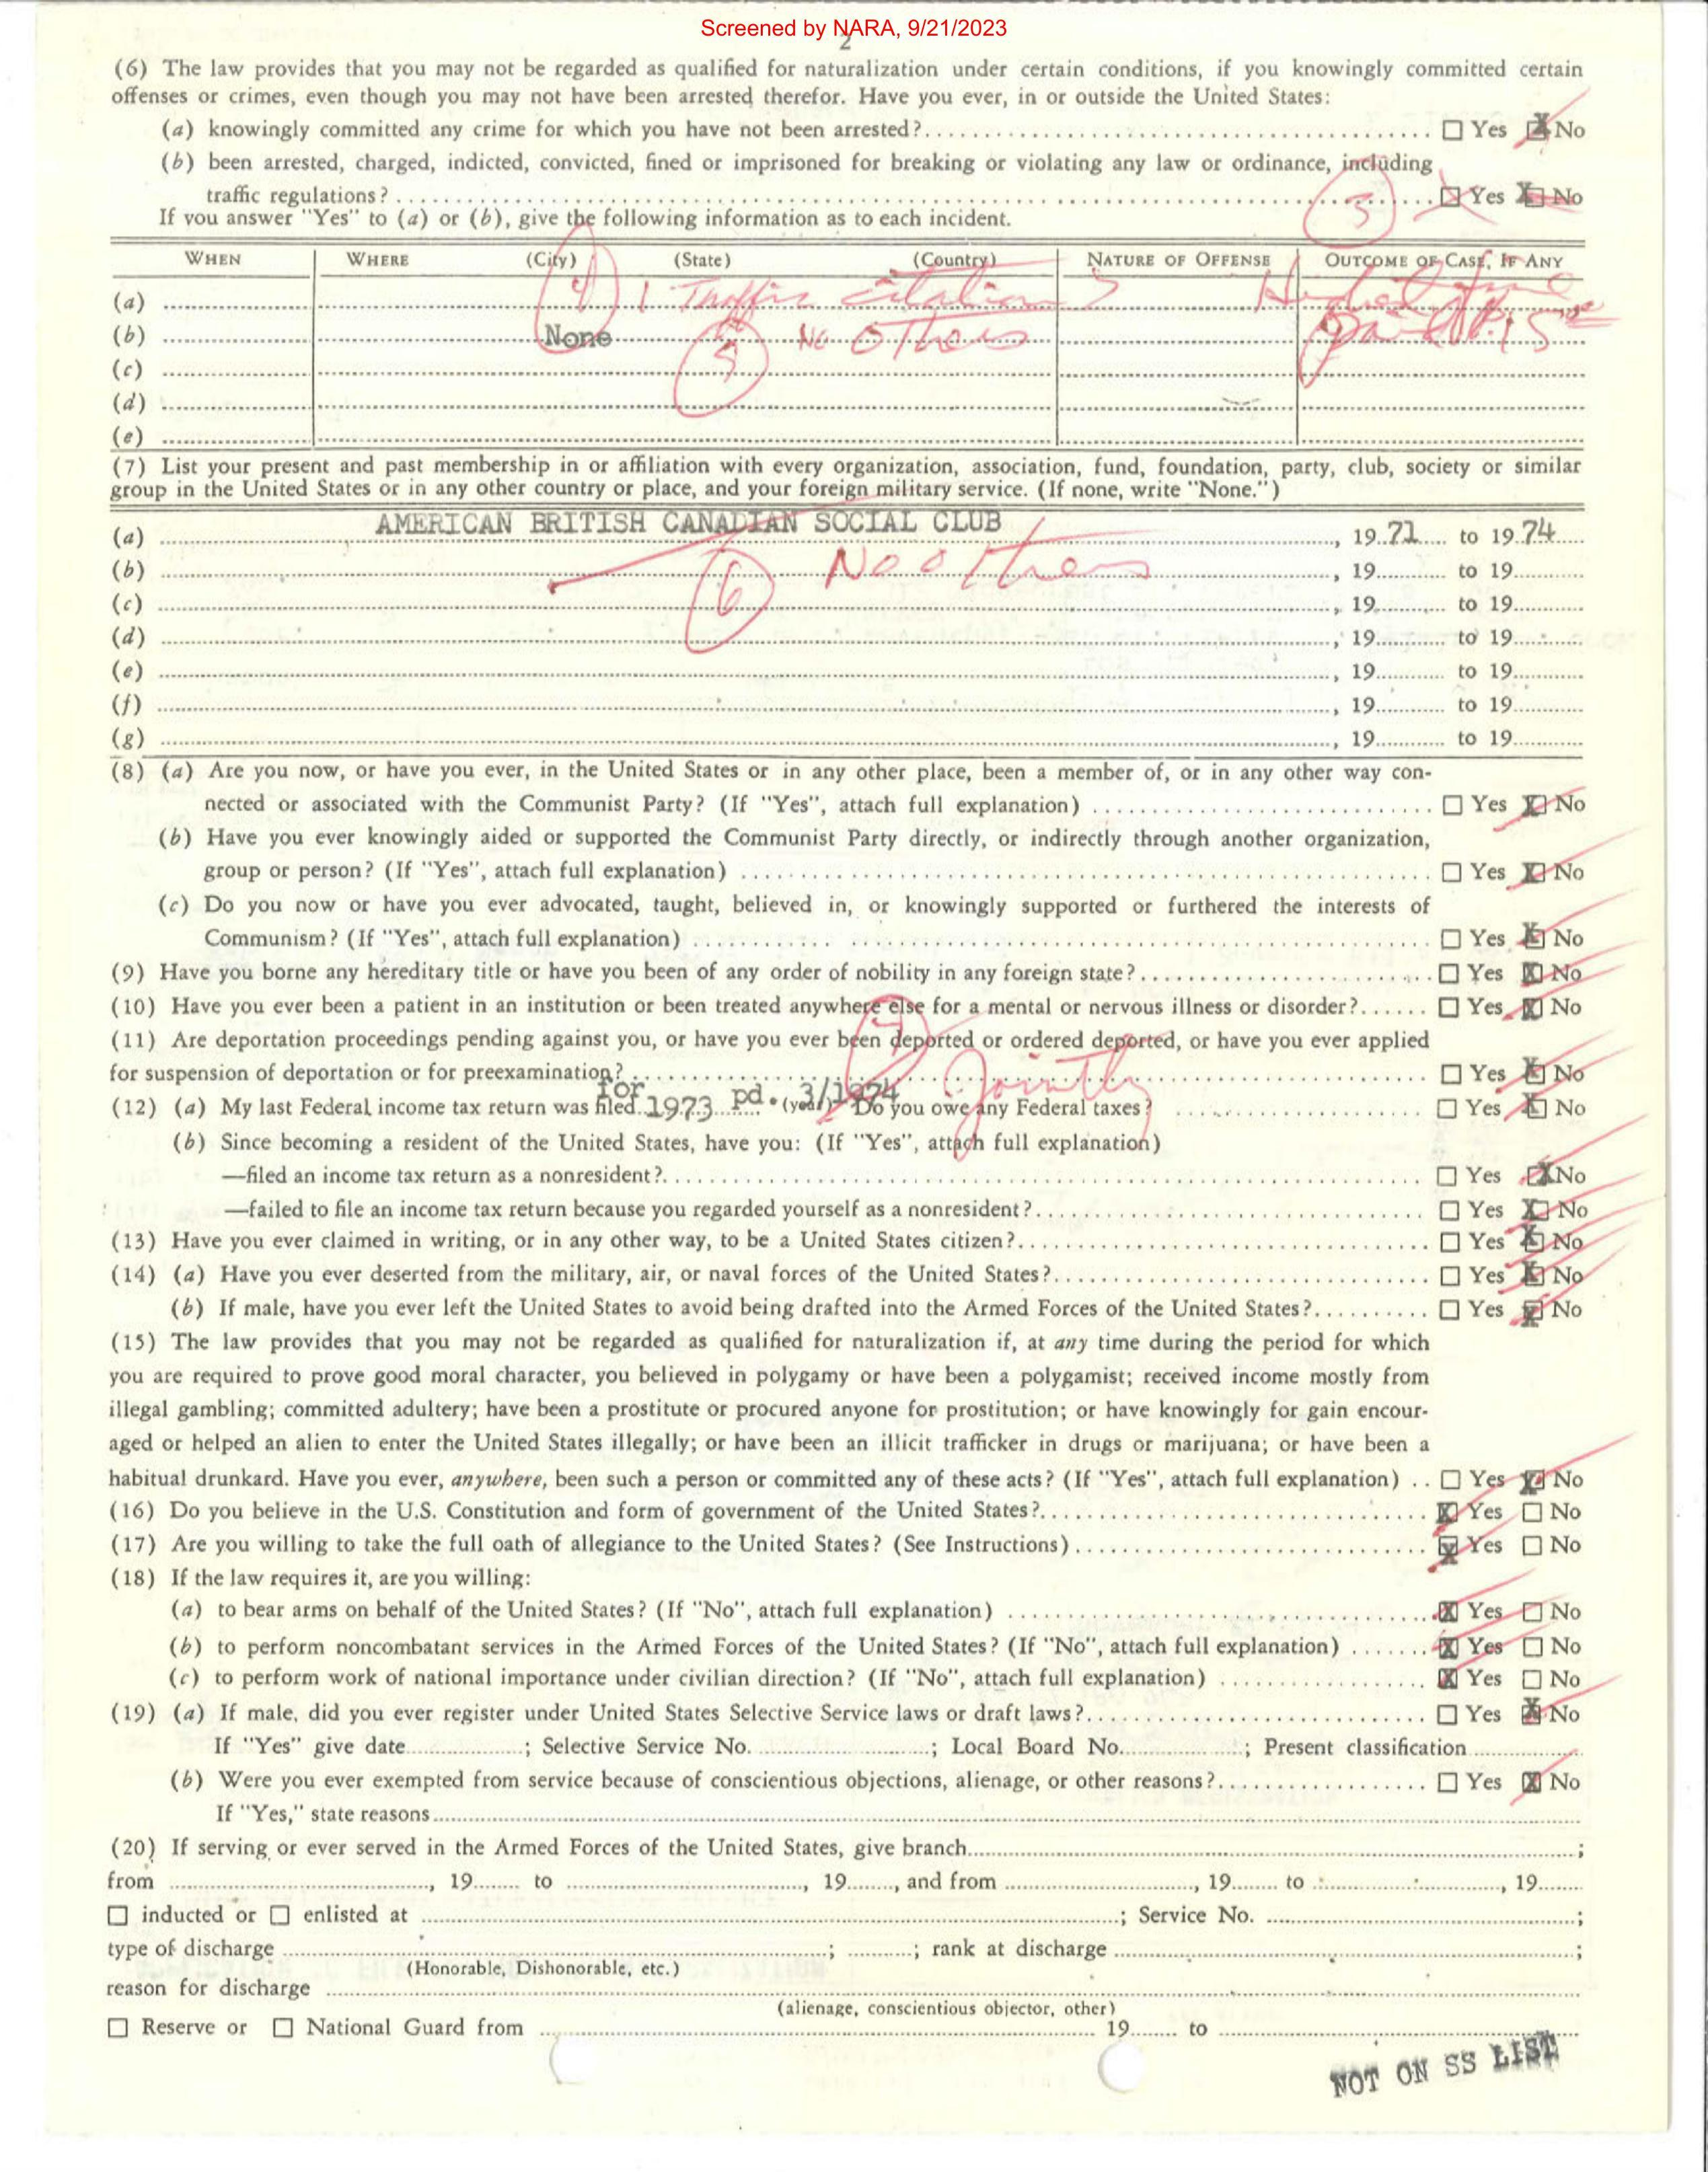 Screened by NARA, 9/21/2023
2
(6) The law provides that you may not be regarded as qualified for naturalization under certain conditions, if you knowingly committed certain
offenses or crimes, even though you may not have been arrested therefor. Have you ever, in or outside the United States:
(a) knowingly committed any crime for which you have not been arrested? ☐ Yes ☒ No
(b) been arrested, charged, indicted, convicted, fined or imprisoned for breaking or violating any law or ordinance, including
traffic regulations? 3 ☒ Yes ☒ No
If you answer "Yes" to (a) or (b), give the following information as to each incident.
WHEN WHERE (City) (State) (Country) NATURE OF OFFENSE OUTCOME OF CASE, IF ANY
(a) 4 1 Traffic citation
(b) None 5 No others paid 15
(c)
(d)
(e)
(7) List your present and past membership in or affiliation with every organization, association, fund, foundation, party, club, society or similar
group in the United States or in any other country or place, and your foreign military service. (If none, write "None.")
(a) AMERICAN BRITISH CANADIAN SOCIAL CLUB, 19 71 to 19 74
(b) No others, 19 to 19
(c) 6, 19 to 19
(d) , 19 to 19
(e) , 19 to 19
(f) , 19 to 19
(g) , 19 to 19
(8) (a) Are you now, or have you ever, in the United States or in any other place, been a member of, or in any other way con-
nected or associated with the Communist Party? (If "Yes", attach full explanation) ☐ Yes ☒ No
(b) Have you ever knowingly aided or supported the Communist Party directly, or indirectly through another organization,
group or person? (If "Yes", attach full explanation) ☐ Yes ☒ No
(c) Do you now or have you ever advocated, taught, believed in, or knowingly supported or furthered the interests of
Communism? (If "Yes", attach full explanation) ☐ Yes ☒ No
(9) Have you borne any hereditary title or have you been of any order of nobility in any foreign state? ☐ Yes ☒ No
(10) Have you ever been a patient in an institution or been treated anywhere else for a mental or nervous illness or disorder? ☐ Yes ☒ No
(11) Are deportation proceedings pending against you, or have you ever been deported or ordered deported, or have you ever applied
for suspension of deportation or for preexamination? ☐ Yes ☒ No
7 Jointly
(12) (a) My last Federal income tax return was filed for 1973 pd. 3/1974 (year) Do you owe any Federal taxes? ☐ Yes ☒ No
(b) Since becoming a resident of the United States, have you: (If "Yes", attach full explanation)
—filed an income tax return as a nonresident? ☐ Yes ☒ No
—failed to file an income tax return because you regarded yourself as a nonresident? ☐ Yes ☒ No
(13) Have you ever claimed in writing, or in any other way, to be a United States citizen? ☐ Yes ☒ No
(14) (a) Have you ever deserted from the military, air, or naval forces of the United States? ☐ Yes ☒ No
(b) If male, have you ever left the United States to avoid being drafted into the Armed Forces of the United States? ☐ Yes ☒ No
(15) The law provides that you may not be regarded as qualified for naturalization if, at any time during the period for which
you are required to prove good moral character, you believed in polygamy or have been a polygamist; received income mostly from
illegal gambling; committed adultery; have been a prostitute or procured anyone for prostitution; or have knowingly for gain encour-
aged or helped an alien to enter the United States illegally; or have been an illicit trafficker in drugs or marijuana; or have been a
habitual drunkard. Have you ever, anywhere, been such a person or committed any of these acts? (If "Yes", attach full explanation) ☐ Yes ☒ No
(16) Do you believe in the U.S. Constitution and form of government of the United States? ☒ Yes ☐ No
(17) Are you willing to take the full oath of allegiance to the United States? (See Instructions) ☒ Yes ☐ No
(18) If the law requires it, are you willing:
(a) to bear arms on behalf of the United States? (If "No", attach full explanation) ☒ Yes ☐ No
(b) to perform noncombatant services in the Armed Forces of the United States? (If "No", attach full explanation) ☒ Yes ☐ No
(c) to perform work of national importance under civilian direction? (If "No", attach full explanation) ☒ Yes ☐ No
(19) (a) If male, did you ever register under United States Selective Service laws or draft laws? ☐ Yes ☒ No
If "Yes" give date ; Selective Service No. ; Local Board No. ; Present classification
(b) Were you ever exempted from service because of conscientious objections, alienage, or other reasons? ☐ Yes ☒ No
If "Yes," state reasons
(20) If serving or ever served in the Armed Forces of the United States, give branch ;
from , 19 to , 19 , and from , 19 to , 19
☐ inducted or ☐ enlisted at ; Service No. ;
type of discharge ; ; rank at discharge ;
(Honorable, Dishonorable, etc.)
reason for discharge
(alienage, conscientious objector, other)
☐ Reserve or ☐ National Guard from 19 to
NOT ON SS LIST